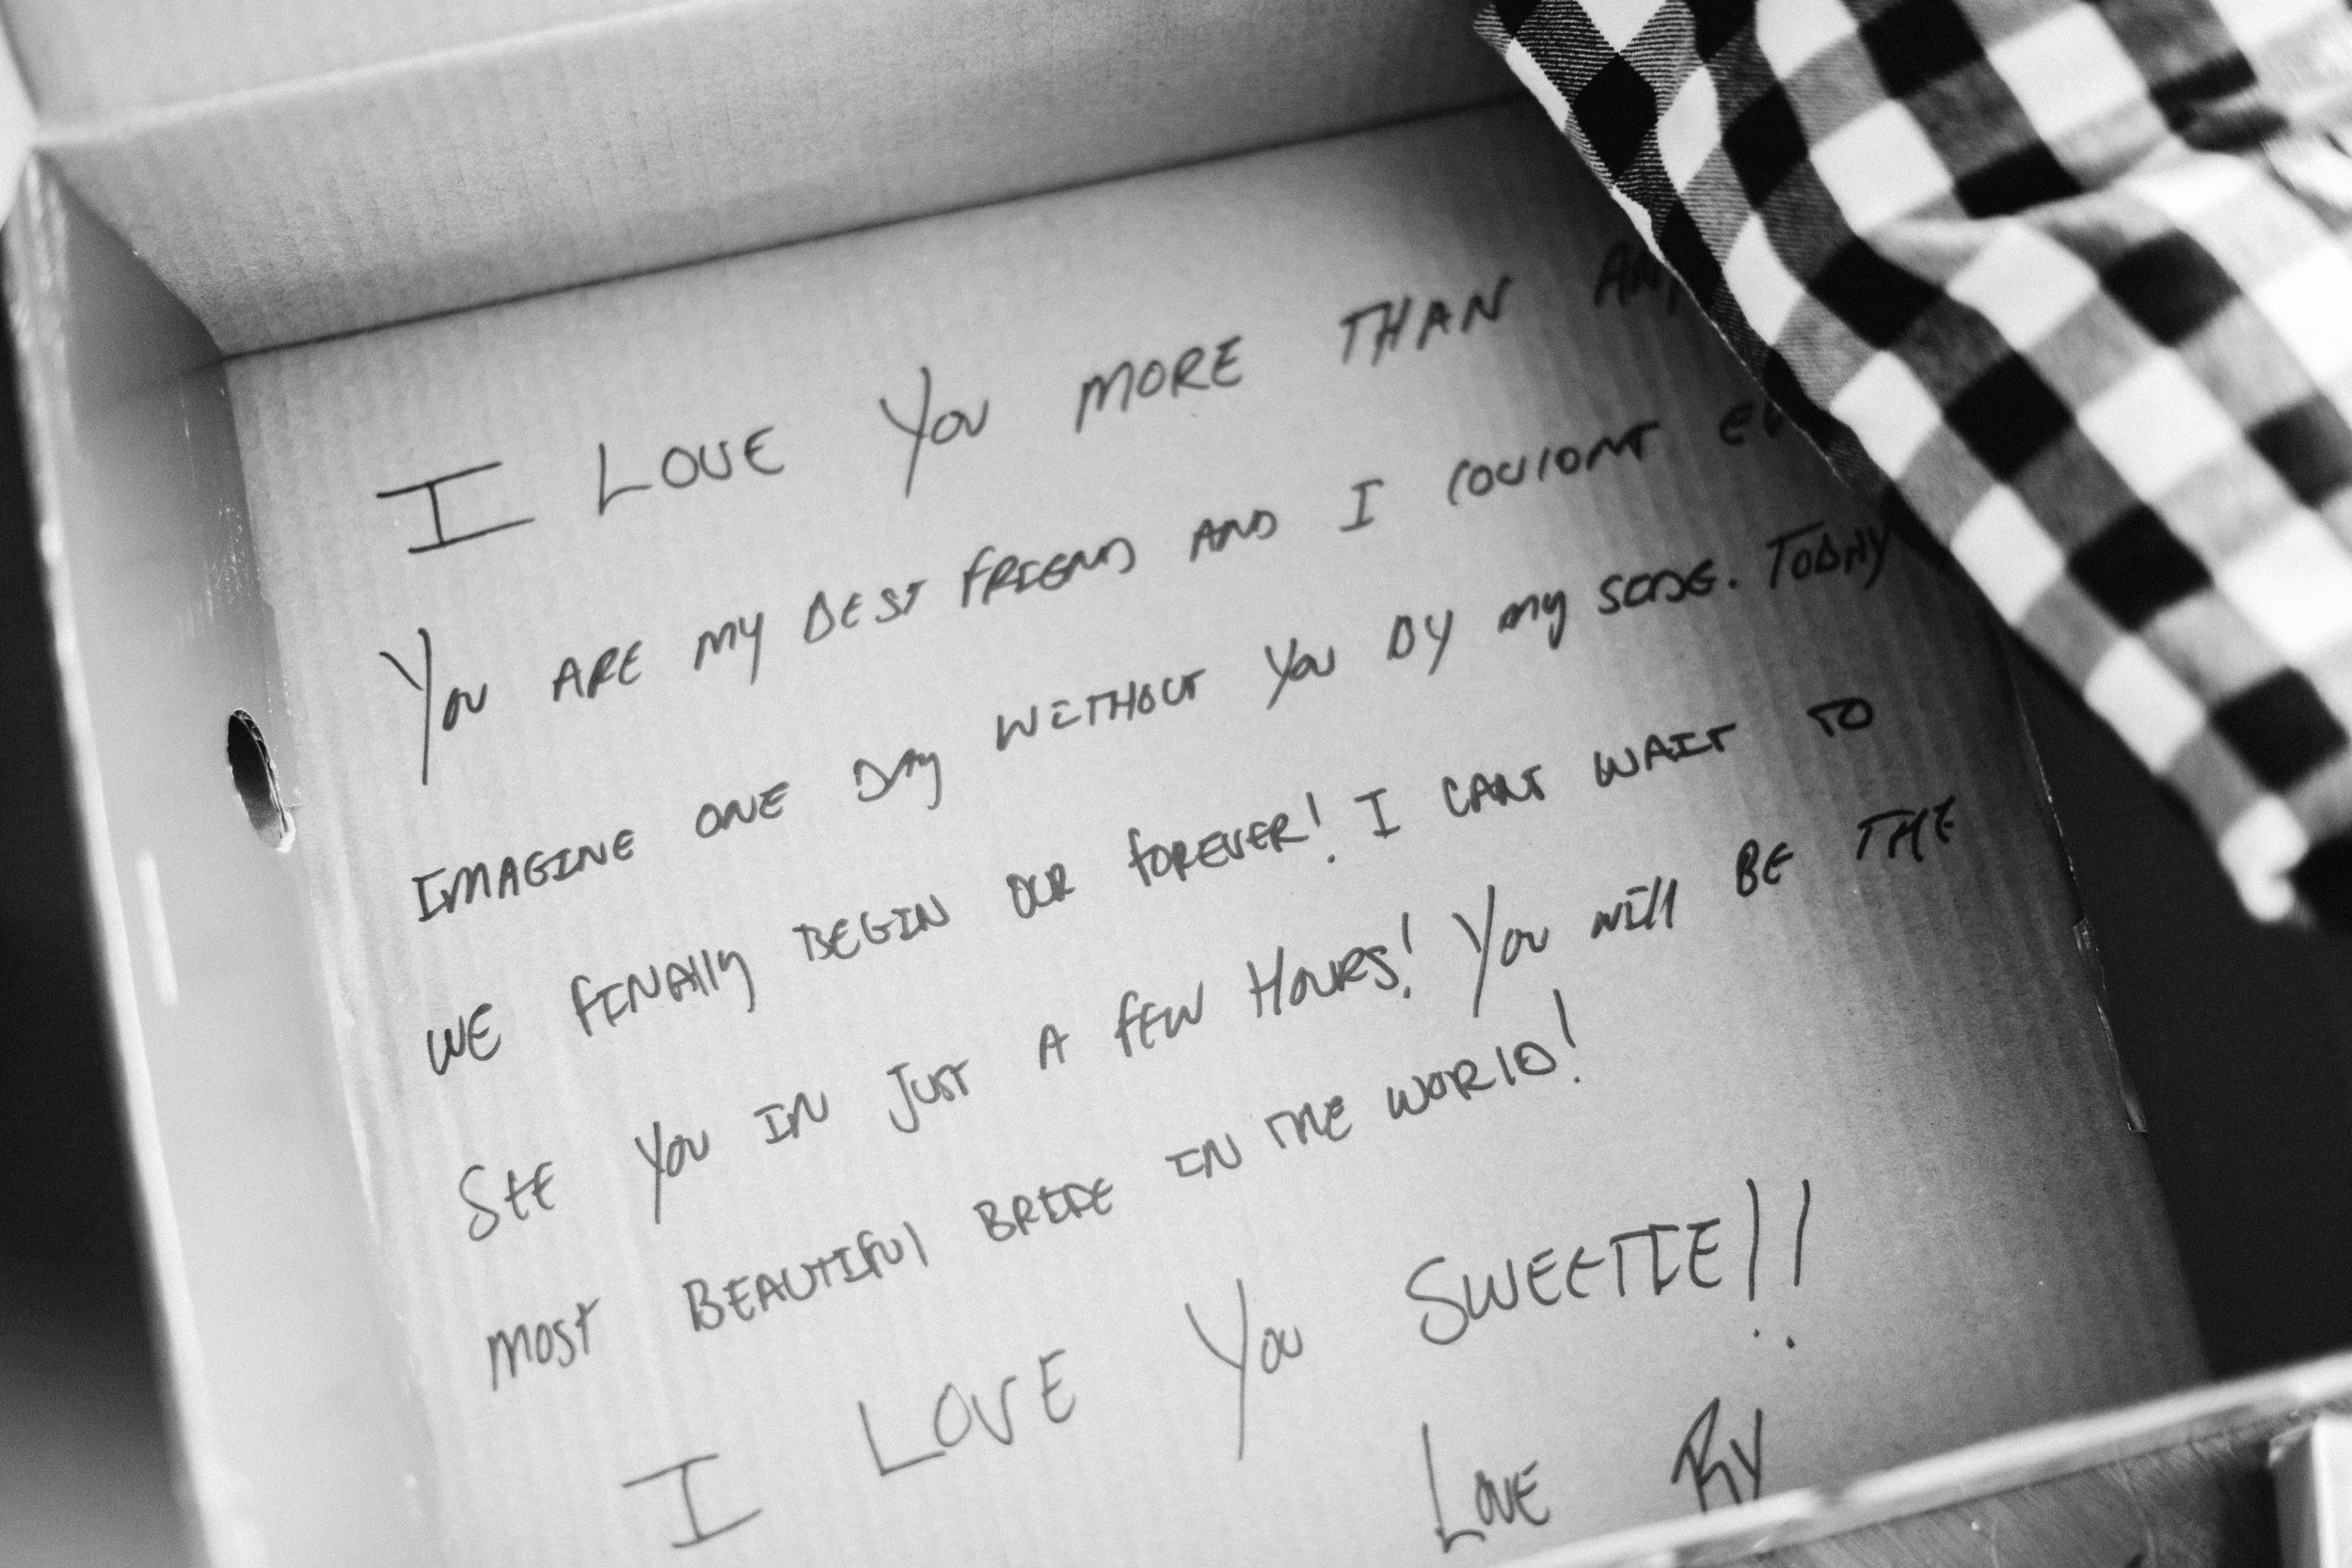 I LOVE YOU MORE THAN
YOU ARE MY BEST FRIEND AND I COULDNT
IMAGINE ONE DAY WITHOUT YOU BY MY SIDE. TODAY
WE FINALLY BEGIN OUR FOREVER! I CANT WAIT TO
SEE YOU IN JUST A FEW HOURS! YOU WILL BE THE
MOST BEAUTIFUL BRIDE IN THE WORLD!
I LOVE YOU SWEETIE!!
LOVE RY